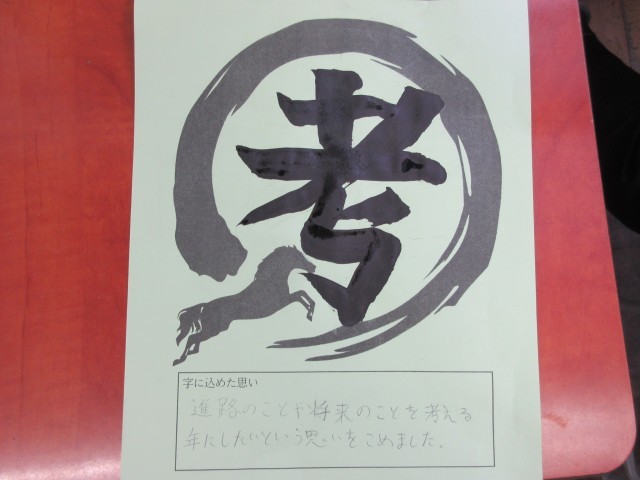 考
字に込めた思い
進路のことや将来のことを考える
年にしたいという思いをこめました。